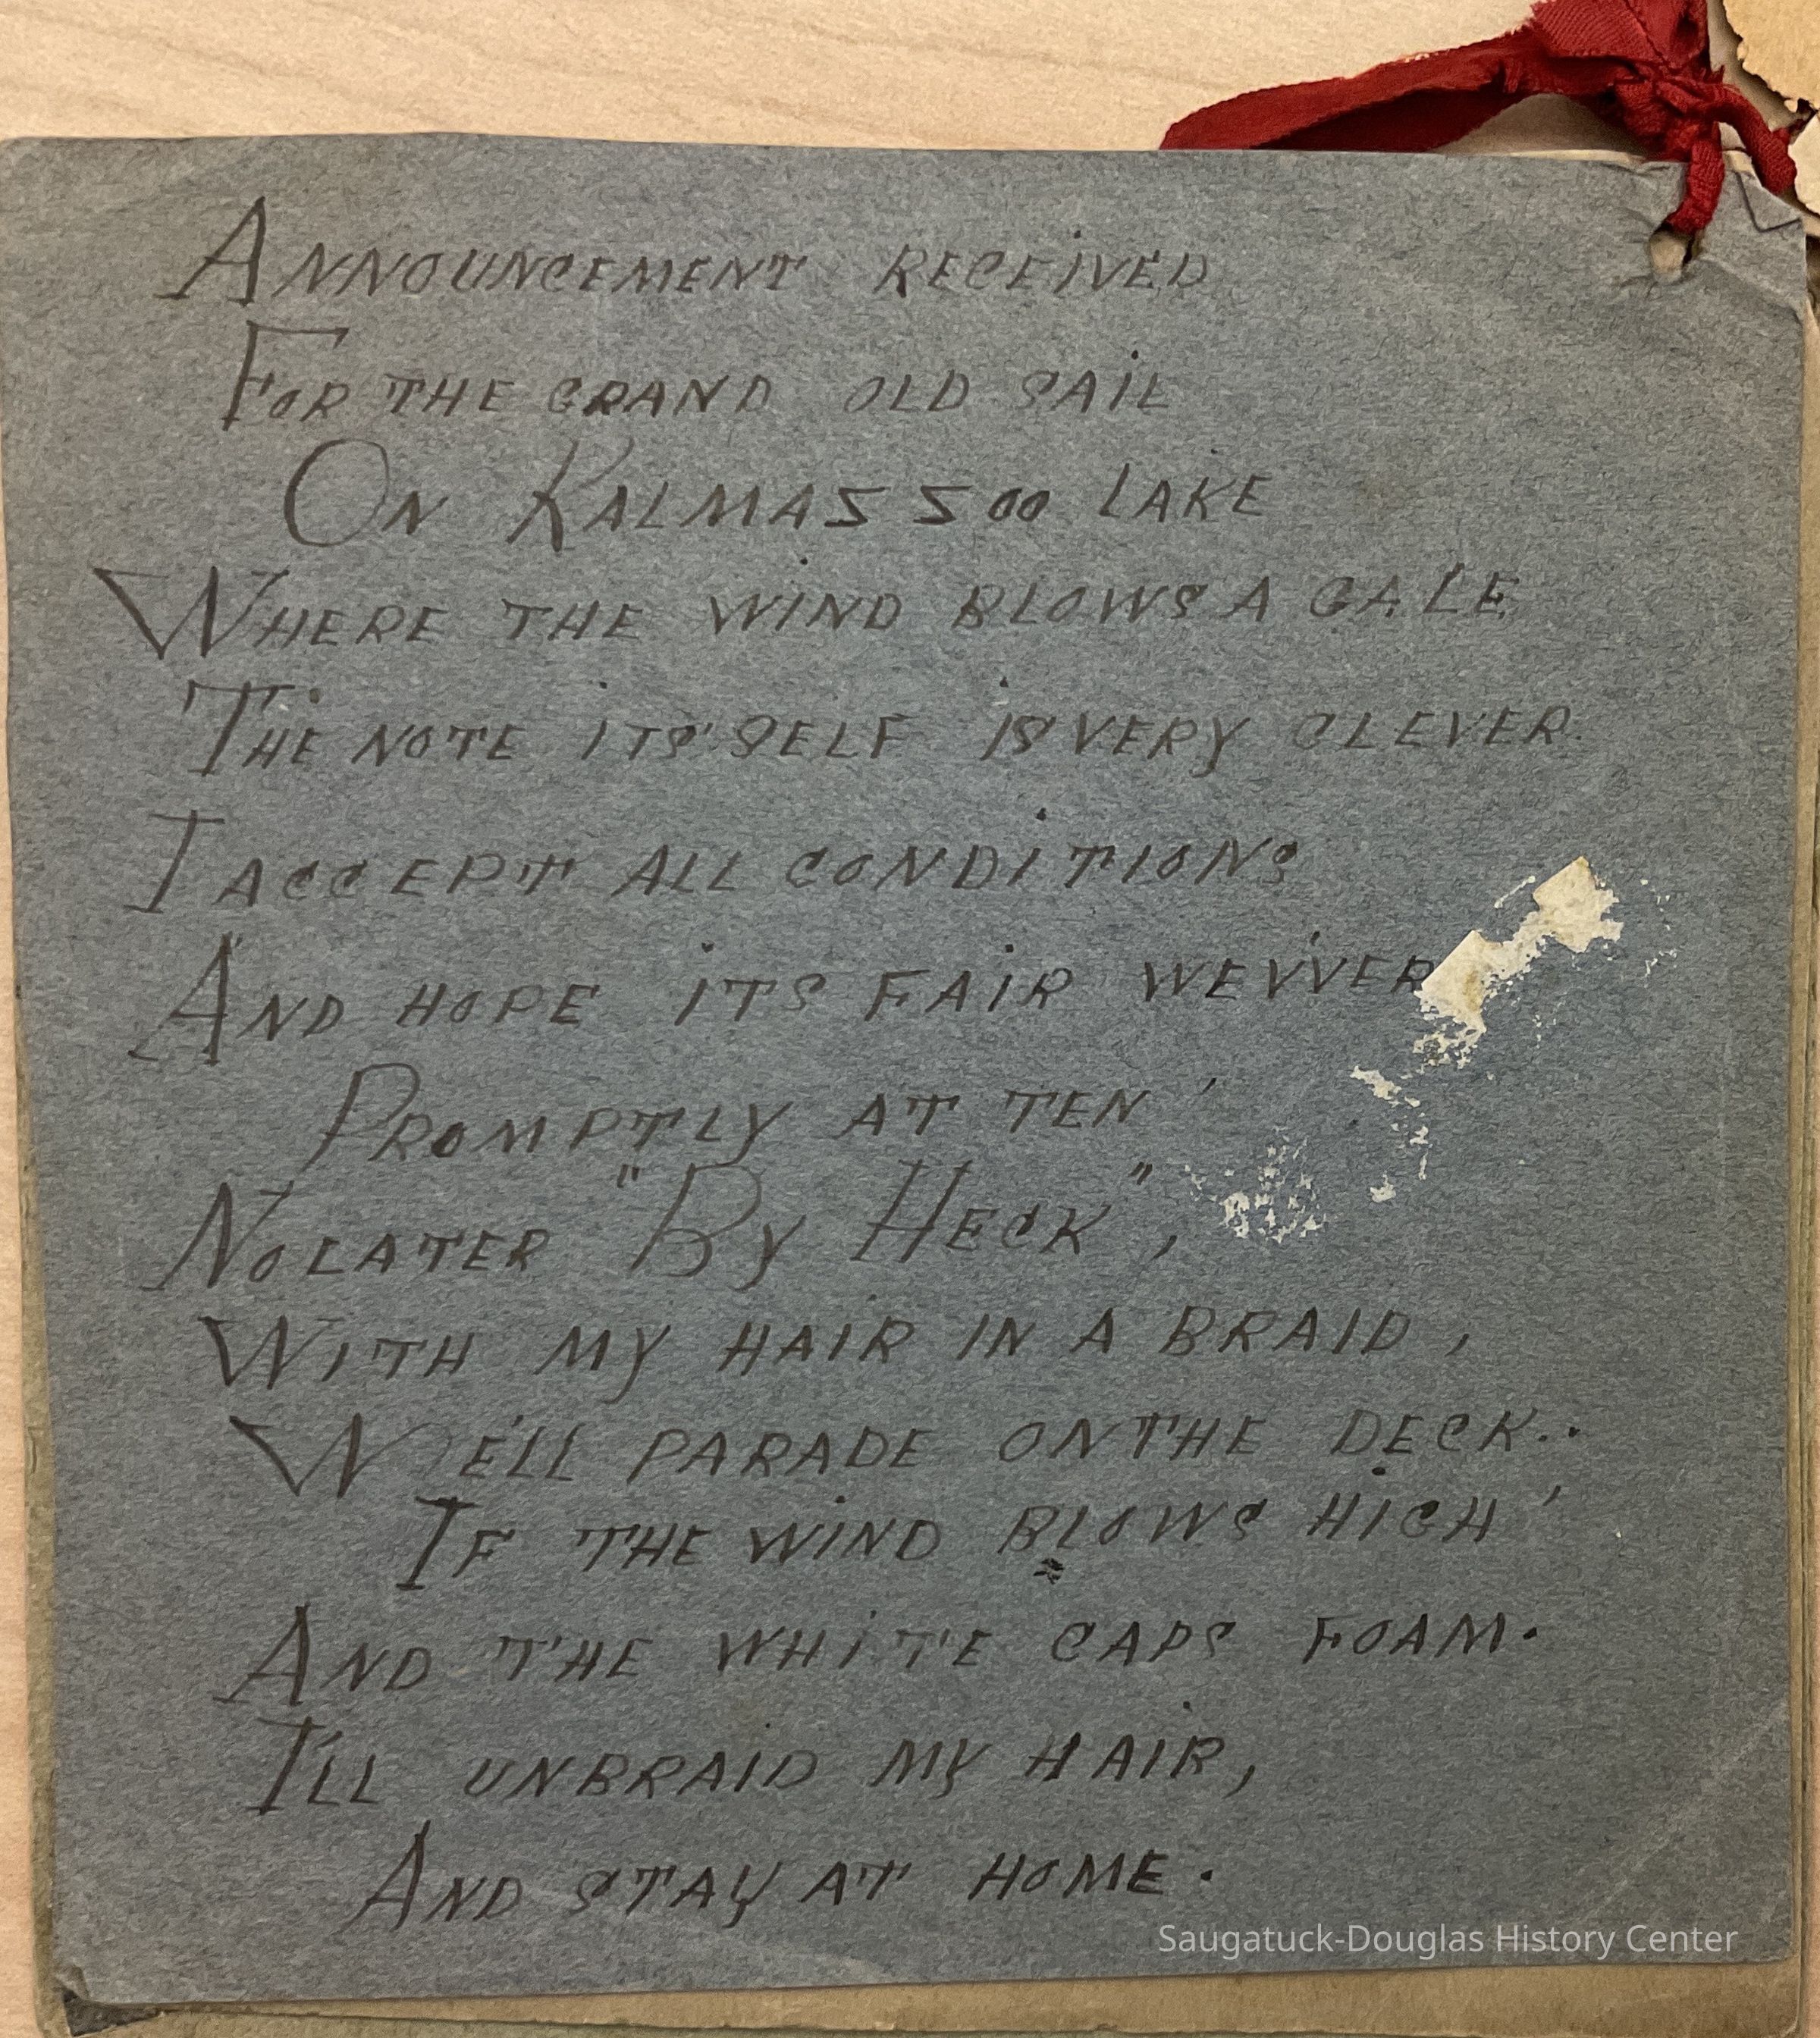 Announcement received
For the grand old sail
On Kalmazzoo Lake
Where the wind blows a gale
The note its'self is very clever.
I accept all conditions
And hope its fair wevver
Promptly at ten'
No later "By Heck",
With my hair in a braid,
We'll parade on the deck..
If the wind blows high'
And the white caps foam.
I'll unbraid my hair,
And stay at home.
Saugatuck-Douglas History Center